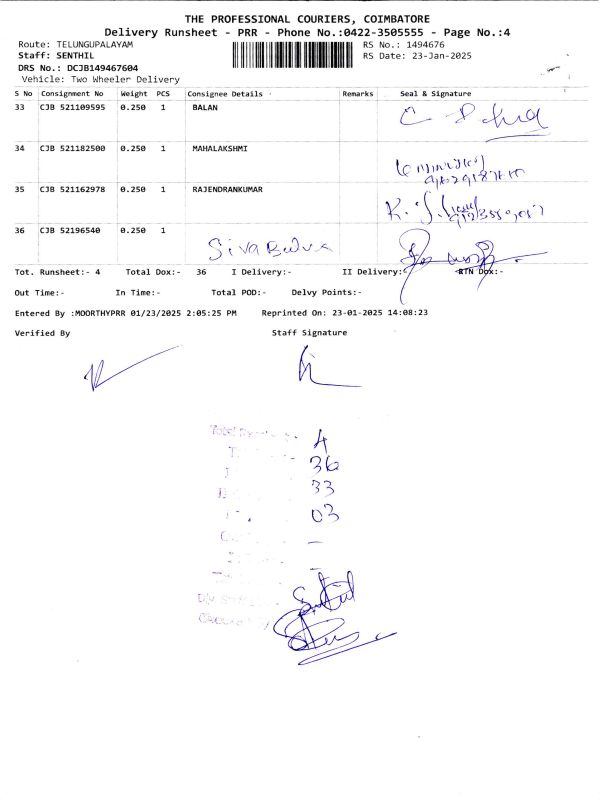 THE PROFESSIONAL COURIERS, COIMBATORE
Delivery Runsheet - PRR - Phone No.:0422-3505555 - Page No.:4
Route: TELUNGUPALAYAM RS No.: 1494676
Staff: SENTHIL RS Date: 23-Jan-2025
DRS No.: DCJB149467604
Vehicle: Two Wheeler Delivery
S No Consignment No Weight PCS Consignee Details Remarks Seal & Signature
33 CJB 521109595 0.250 1 BALAN
34 CJB 521182500 0.250 1 MAHALAKSHMI
35 CJB 521162978 0.250 1 RAJENDRANKUMAR
36 CJB 52196540 0.250 1
Tot. Runsheet:- 4 Total Dox:- 36 I Delivery:- II Delivery:- RTN Dox:-
Out Time:- In Time:- Total POD:- Delvy Points:-
Entered By :MOORTHYPRR 01/23/2025 2:05:25 PM Reprinted On: 23-01-2025 14:08:23
Verified By Staff Signature
4
36
33
03